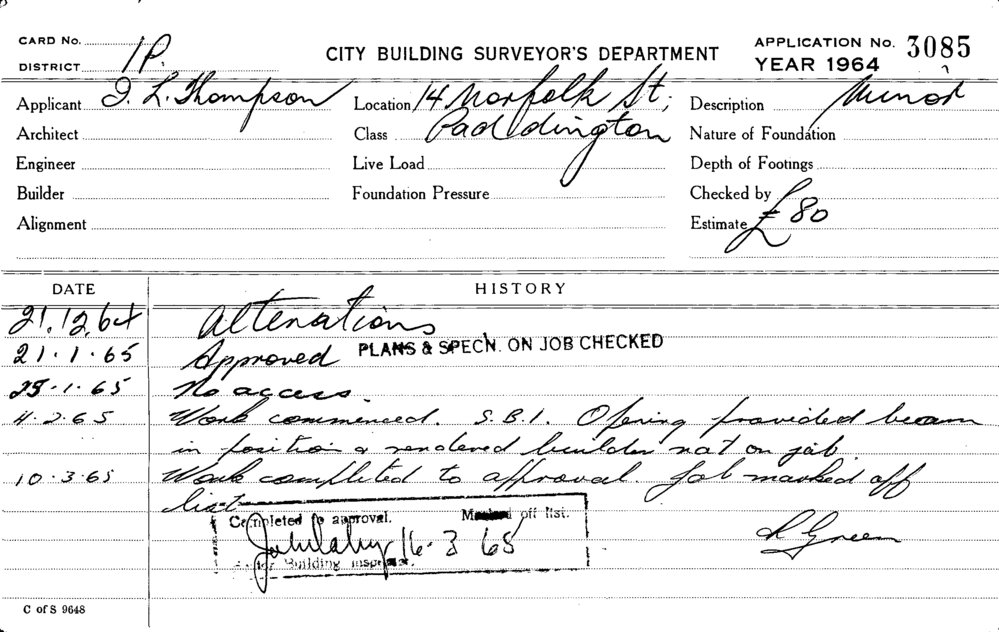 CARD No.
DISTRICT 1P.
CITY BUILDING SURVEYOR'S DEPARTMENT
APPLICATION No. 3085
YEAR 1964
Applicant I. L. Thompson Location 14 Norfolk St; Description Minor
Architect Class Paddington Nature of Foundation
Engineer Live Load Depth of Footings
Builder Foundation Pressure Checked by
Alignment Estimate £80
DATE HISTORY
21.12.64 Alterations
21.1.65 Approved PLANS & SPEC'N. ON JOB CHECKED
25.1.65 No access.
4.2.65 Work commenced. S.B.I. Opening provided beam
in position & rendered builder not on job.
10.3.65 Work completed to approval. Job marked off
list
Completed to approval. Marked off list.
16.3.65
Building Inspector.
Green
C of S 9648